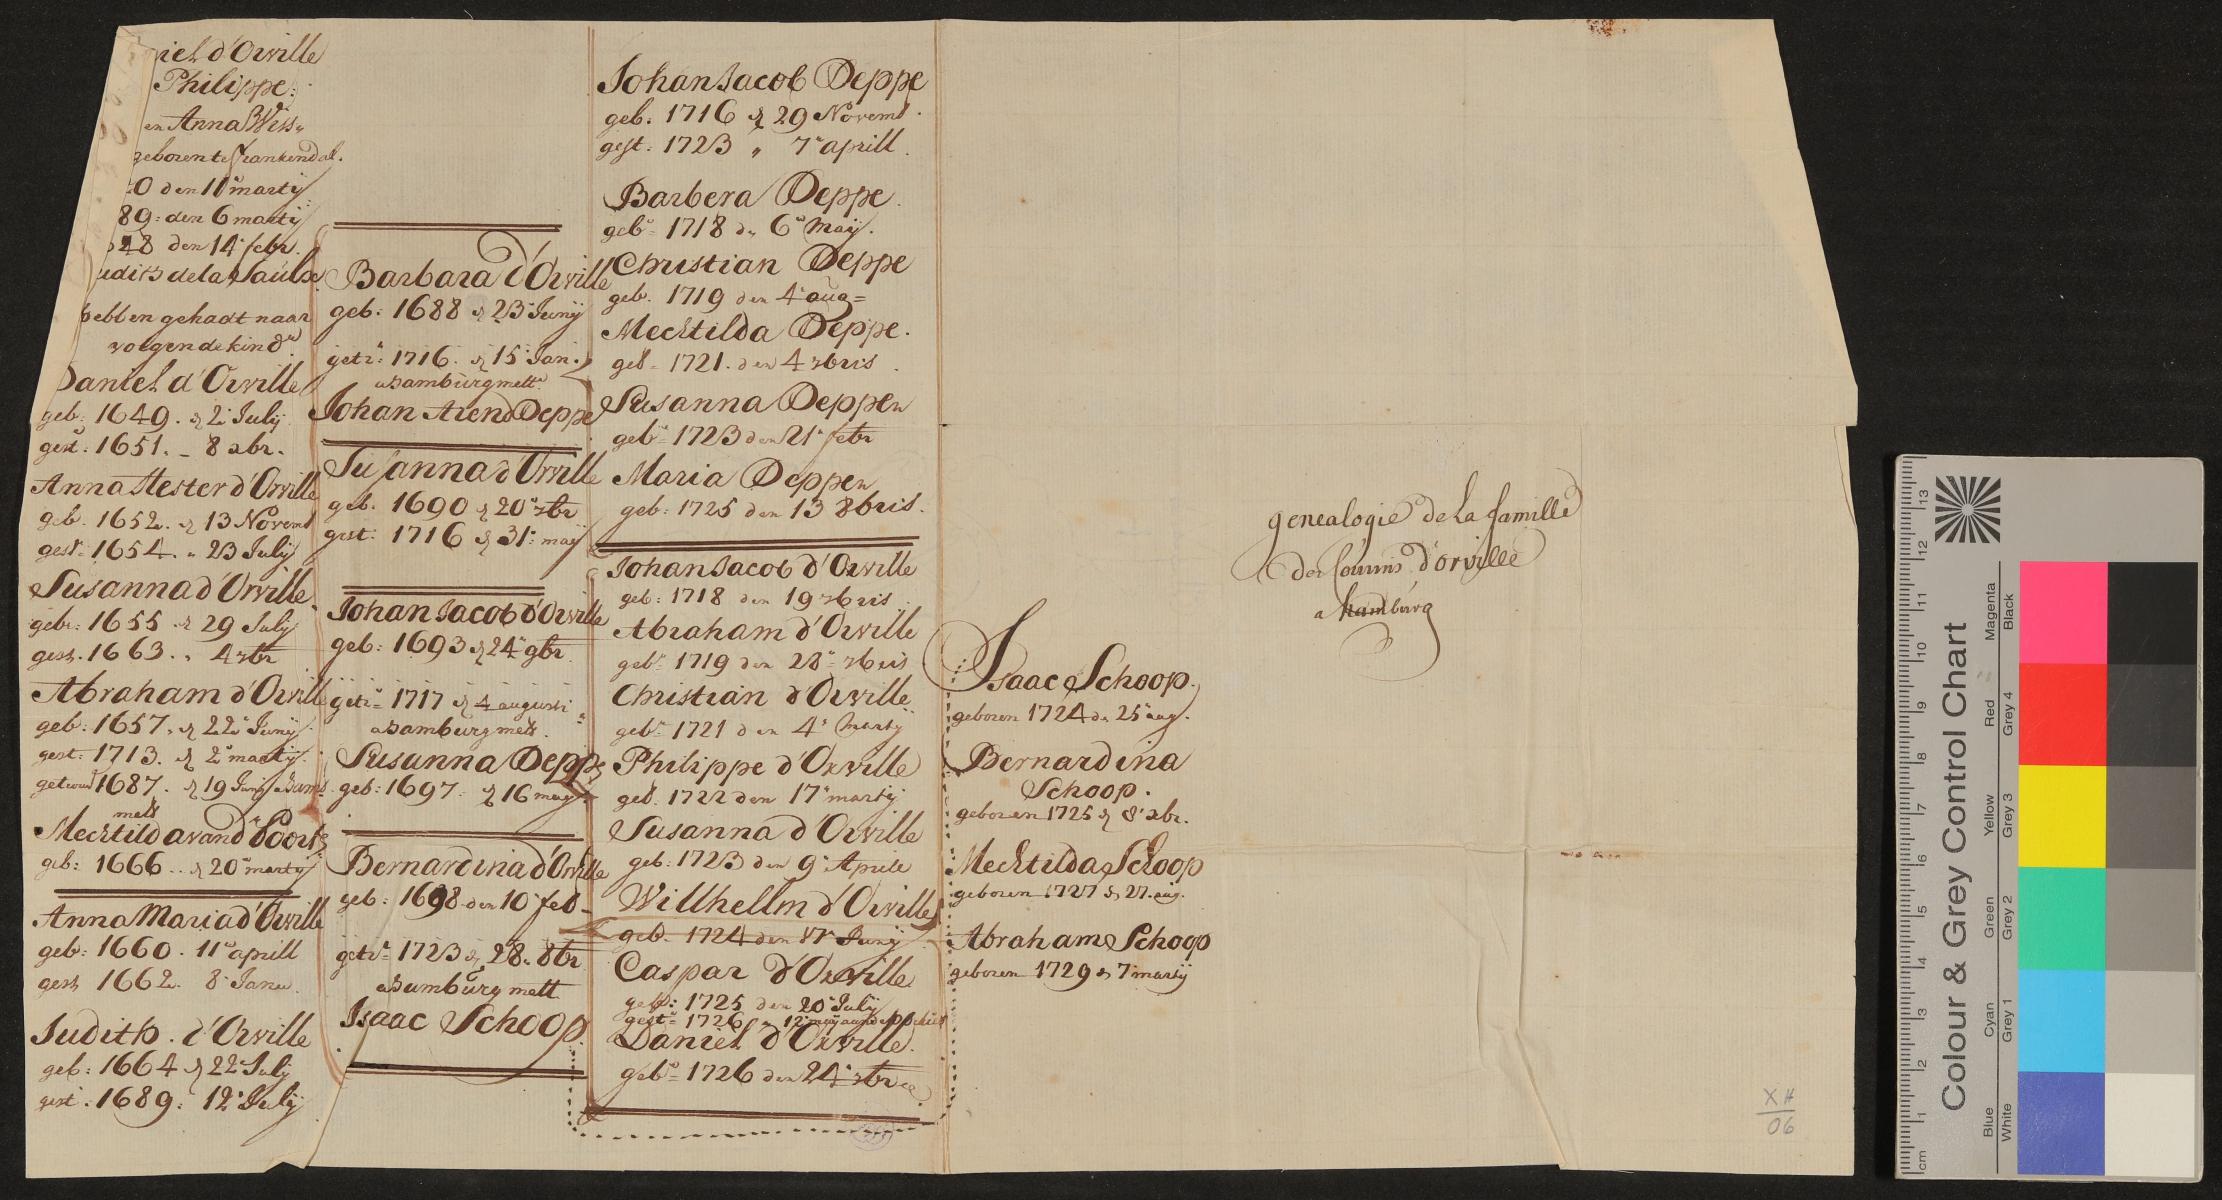 niel d'Orville
Philippe:
en Anna Wiss
geboren te Frankendal.
0 den 11 martij
89: den 6 martij
48 den 14 febr.
udits de la Saulx
hebben gehadt naar
volgende kind
Daniel d'Orville
geb: 1649. d 2 July
gest: 1651. - 8 xbr.
Anna Hester d'Orville
geb. 1652. d 13 Novemb
gest: 1654. " 23 July
Susanna d'Orville
gebr: 1655 d 29 July
gest. 1663. " 4 xbr
Abraham d'Orville
geb: 1657. d 22 Junij
gest: 1713. d 2 martij.
getrouwt 1687. d 19 Junij a Hamb
mett
Mechtilda vand Poorts
geb: 1666 .. d 20 martij
Anna Maria d'Orville
geb: 1660 . 11 aprill
gest 1662. 8 Janu.
Judith . d'Orville
geb: 1664 d 22 July
gest . 1689: 12 July
Barbara d'Orville
geb: 1688 d 23 Junij
getr: 1716. d 15 Jan.
a Hamburg mett
Johan Arend Deppe
Susanna d'Orville
geb. 1690 d 20 xbr
gest: 1716 d 31: maij
Johan Jacob d'Orville
geb: 1693 d 24 9br.
getr= 1717 d 4 augusti
a Hamburg mett.
Susanna Deppe
geb: 1697: d 16 maij
Bernardina d'Orville
geb: 1698 den 10 feb -
getr= 1723 d 28. 8br
a Hamburg mett
Isaac Schoop.
Johan Jacob Deppe
geb. 1716 d 29 Novemb.
gest: 1723 " 7 aprill.
Barbera Deppe.
geb= 1718 d. 6 Maij.
Christian Deppe
geb. 1719 den 4 aug=
Mechtilda Deppe.
geb - 1721. den 4 xbris .
Susanna Deppen
geb= 1723 den 21 febr
Maria Deppen
geb: 1725 den 13 8bris.
Johan Jacob d'Orville
geb: 1718 den 19 xbris
Abraham d'Orville
geb= 1719 den 28= xbris
Christian d'Orville
geb= 1721 den 4 Martij
Philippe d'Orville
geb. 1722 den 17 martij
Susanna d'Orville
geb: 1723 den 9 Aprile
Willhellm d'Orville
geb. 1724 den 17 Junij
Caspar d'Orville
geb: 1725 den 20 July
gest= 1726 " 12 maij
Daniel d'Orville.
geb= 1726 den 24 xbr
Isaac Schoop.
geboren 1724 dn 25 aug.
Bernardina
Schoop.
geboren 1725 d 8 xbr.
Mechtilda Schoop
geboren 1727 d 27. aug.
Abraham Schoop
geboren 1729 d 7 martij
genealogie de la famille
des Cousins d'orville
a hambúrg
XH
06
Colour & Grey Control Chart
Blue Cyan Green Yellow Red Magenta
White Grey 1 Grey 2 Grey 3 Grey 4 Black
cm 1 2 3 4 5 6 7 8 9 10 11 12 13